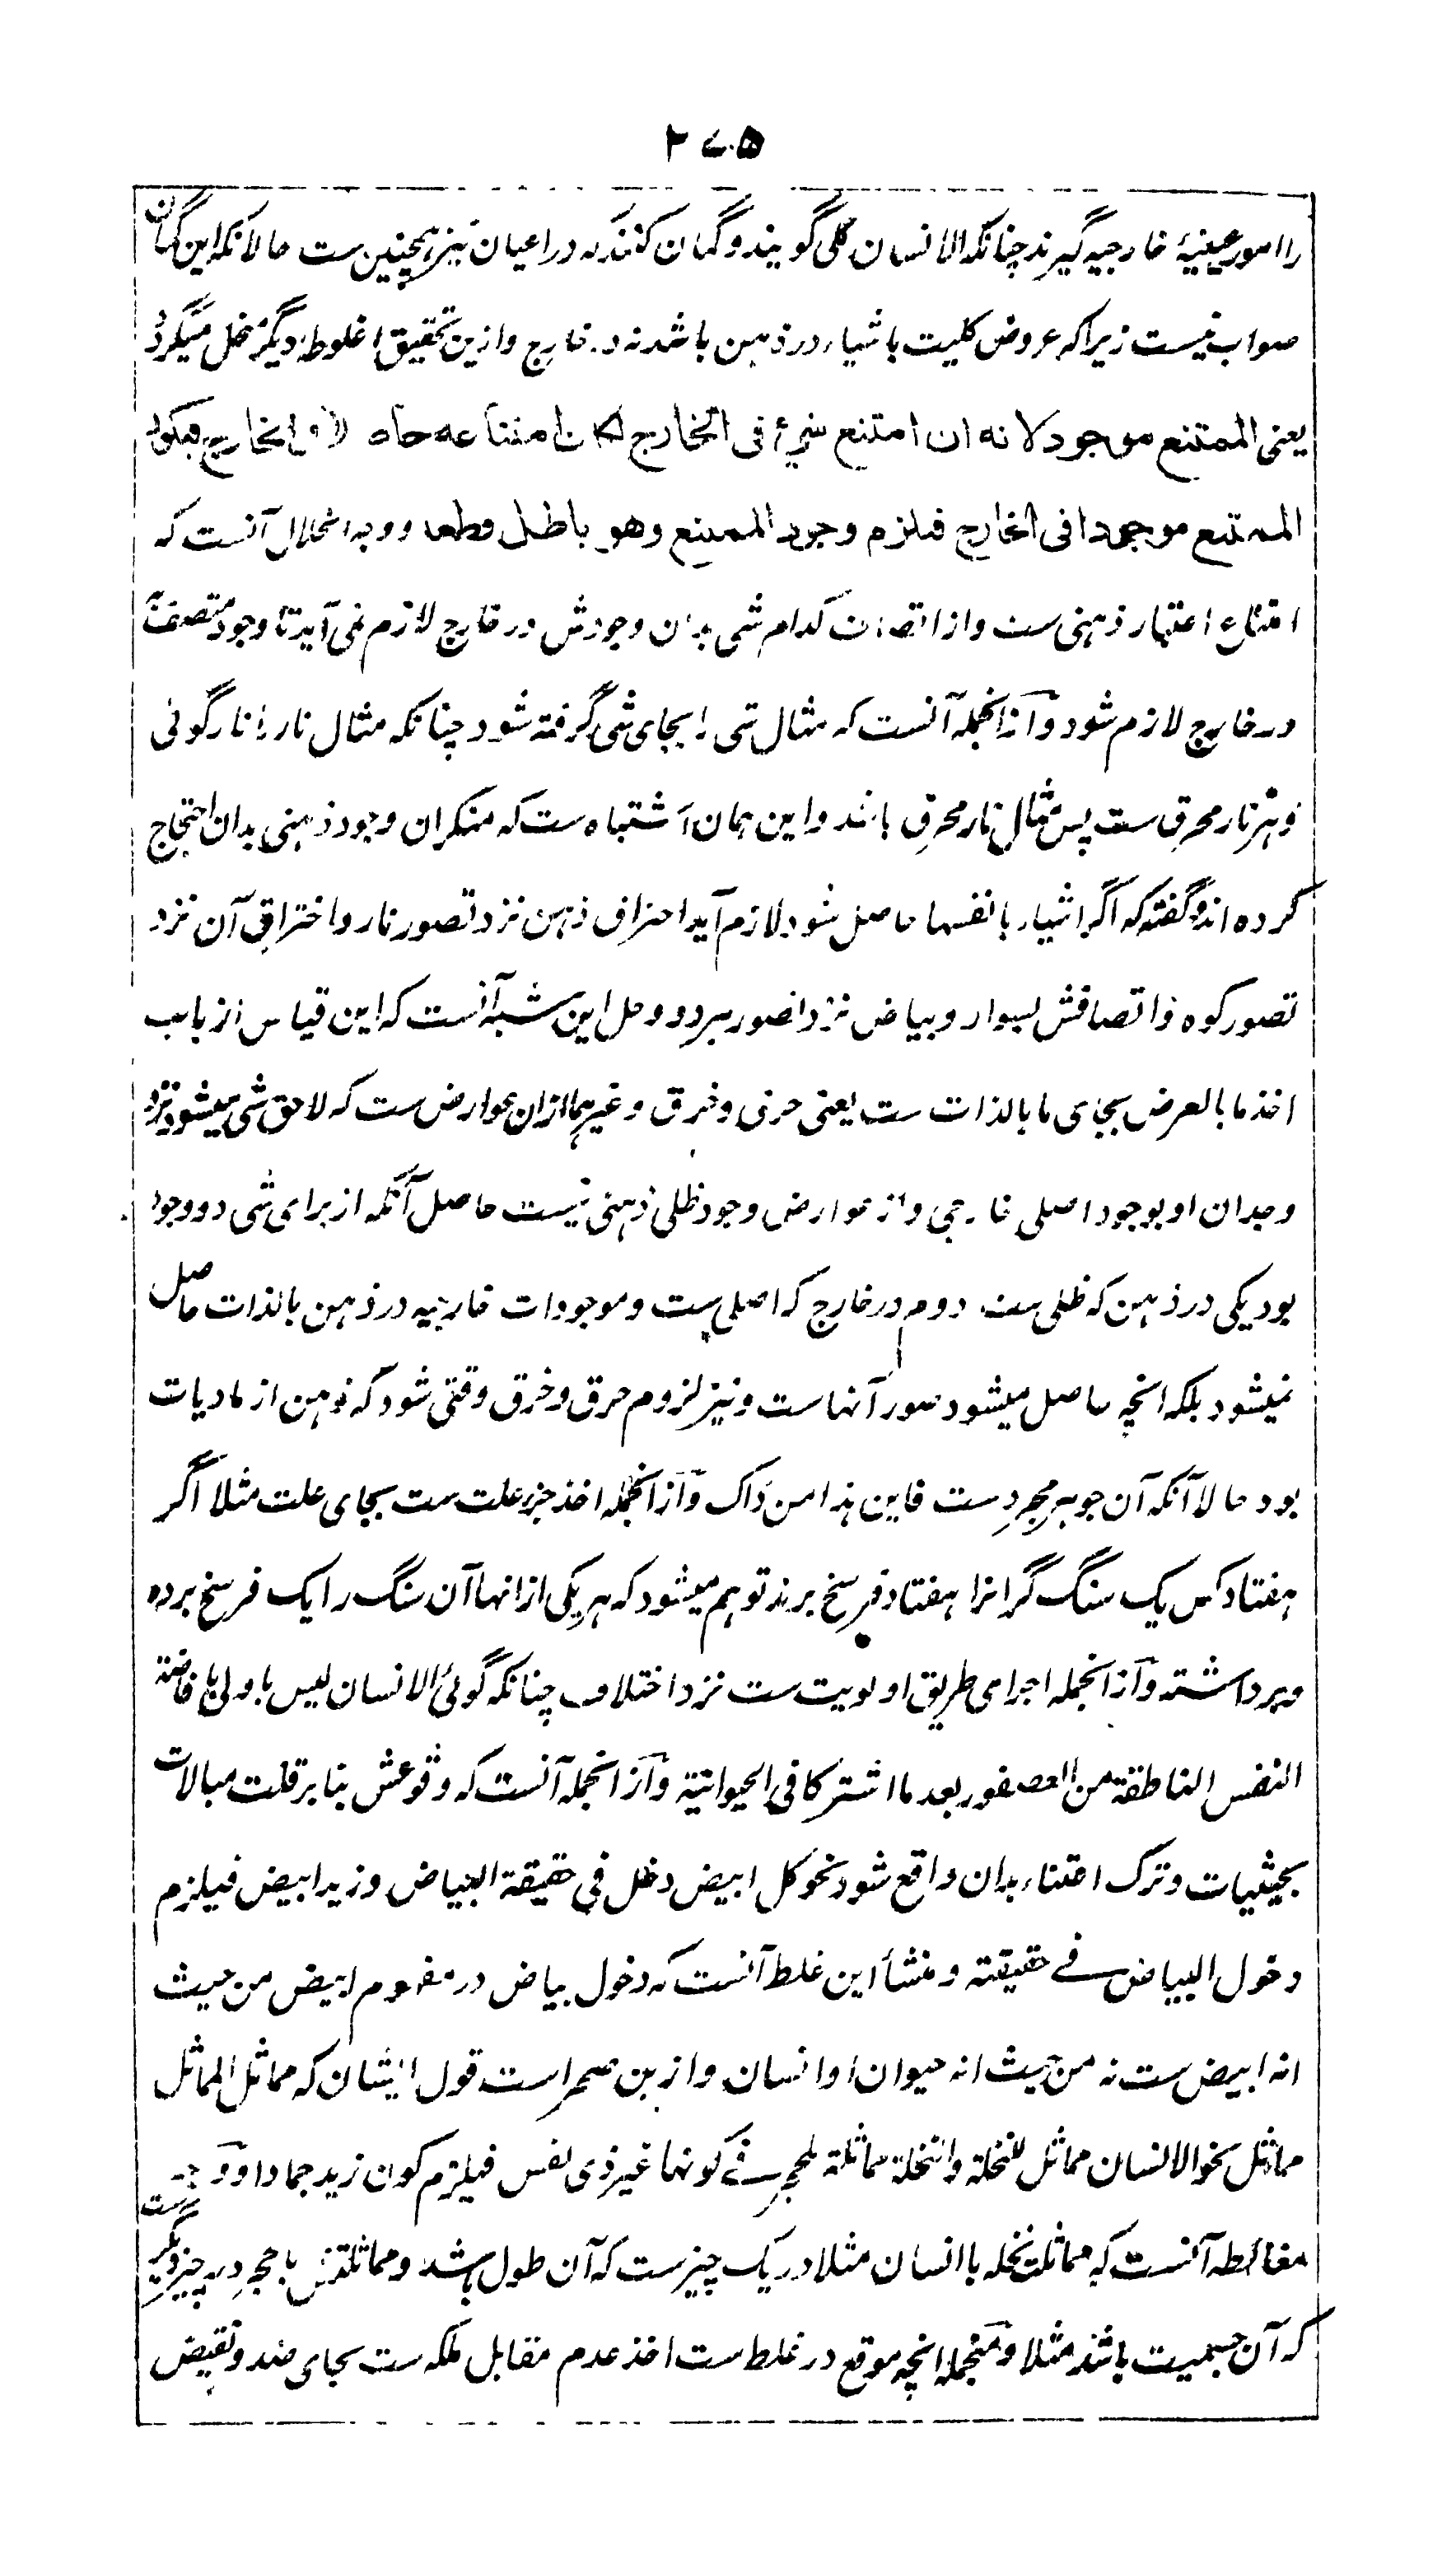 ۲۷۵
را امور عینیهٔ خارجیه گیرند چنانکه الانسان کلی گویند و گمان کنند که در اعیان نیز همچنین ست حالانکه این گمان
صواب نیست زیرا که عروض کلیت باشیاء در ذهن باشد نه در خارج و ازین تحقیق اغلوطهٔ دیگر منحل میگردد
یعنی الممتنع موجود لانه ان امتنع شیء فی الخارج لکان امتناعه حاصلا فی الخارج فیکون
الممتنع موجودا فی الخارج فیلزم وجود الممتنع وهو باطل قطعا و وجه انحلال آنست که
امتناع اعتبار ذهنی ست و از اتصاف کدام شی بدان وجودش در خارج لازم نمی آید تا وجود متصف
در خارج لازم شود و ازانجمله آنست که مثال شی را بجای شی گرفته شود چنانکه مثال نار را نار گوئی
و هر نار محرق ست پس مثال نار محرق باشد و این همان اشتباه ست که منکران وجود ذهنی بدان احتجاج
کرده اند و گفته که اگر اشیاء بانفسها حاصل شود لازم آید احتراق ذهن نزد تصور نار و اختراق آن نزد
تصور کوه و اتصافش بسواد و بیاض نزد تصور هر دو و حل این شبه آنست که این قیاس از باب
اخذ ما بالعرض بجای ما بالذات ست یعنی حرق و خرق و غیرهما ازان عوارض ست که لاحق شی میشود نزد
وجدان او بوجود اصلی خارجی و از عوارض وجود ظلی ذهنی نیست حاصل آنکه از برای شی دو وجود
بود یکی در ذهن که ظلی ست دوم در خارج که اصلی ست و موجودات خارجیه در ذهن بالذات حاصل
نمیشود بلکه انچه حاصل میشود صور آنهاست و نیز لزوم حرق و خرق وقتی شود که ذهن از مادیات
بود حالا آنکه آن جوهر مجرد ست فاین هذا من ذاک و ازانجمله اخذ جزء علت ست بجای علت مثلا اگر
هفتاد کس یک سنگ گرانرا هفتاد فرسخ برند توهم میشود که هر یکی ازانها آن سنگ را یک فرسخ برده
و برداشته و ازانجمله اجرای طریق اولویت ست نزد اختلاف چنانکه گوئی الانسان لیس باولی بافاضة
النفس الناطقة من العصفور بعد ما اشترکا فی الحیوانیة و ازانجمله آنست که وقوعش بنا بر قلت مبالات
بحیثیات و ترک اعتناء بدان واقع شود نحو کل ابیض دخل فی حقیقة البیاض و زید ابیض فیلزم
دخول البیاض فی حقیقته و منشأ این غلط آنست که دخول بیاض در مفهوم ابیض من حیث
انه ابیض ست نه من حیث انه حیوان او انسان و ازین صحراست قول ایشان که مماثل المماثل
مماثل نحو الانسان مماثل للنخلة والنخلة مماثلة للحجر فی کونها غیر ذی نفس فیلزم کون زید جمادا و وجه
مغالطه آنست که مماثلت نخله با انسان مثلا در یک چیز ست که آن طول باشد و مماثلتش با حجر در چیز دیگر ست
که آن جسمیت باشد مثلا و منجمله انچه موقع در غلط ست اخذ عدم مقابل ملکه ست بجای ضد و نقیض